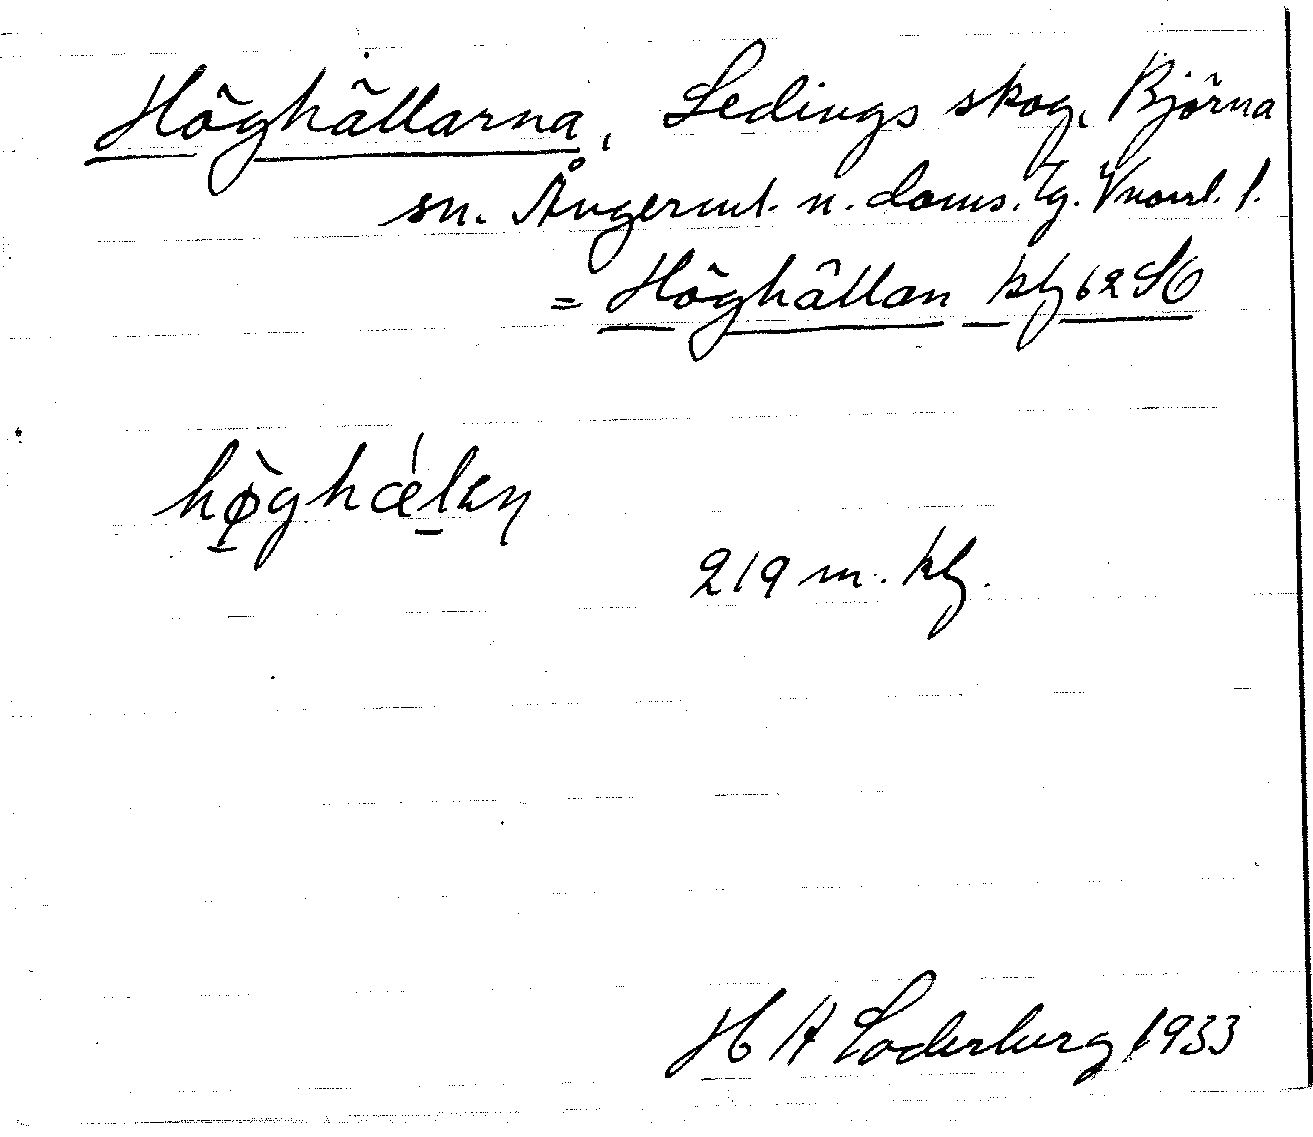 Höghällarna, Ledings skog, Björna
sn. Ångerml. n. doms. tg. Vnorrl. l.
= Höghällan kbl 62 SO
hø̀ghǽlɐn
219 m. kbl.
H A Söderberg 1933